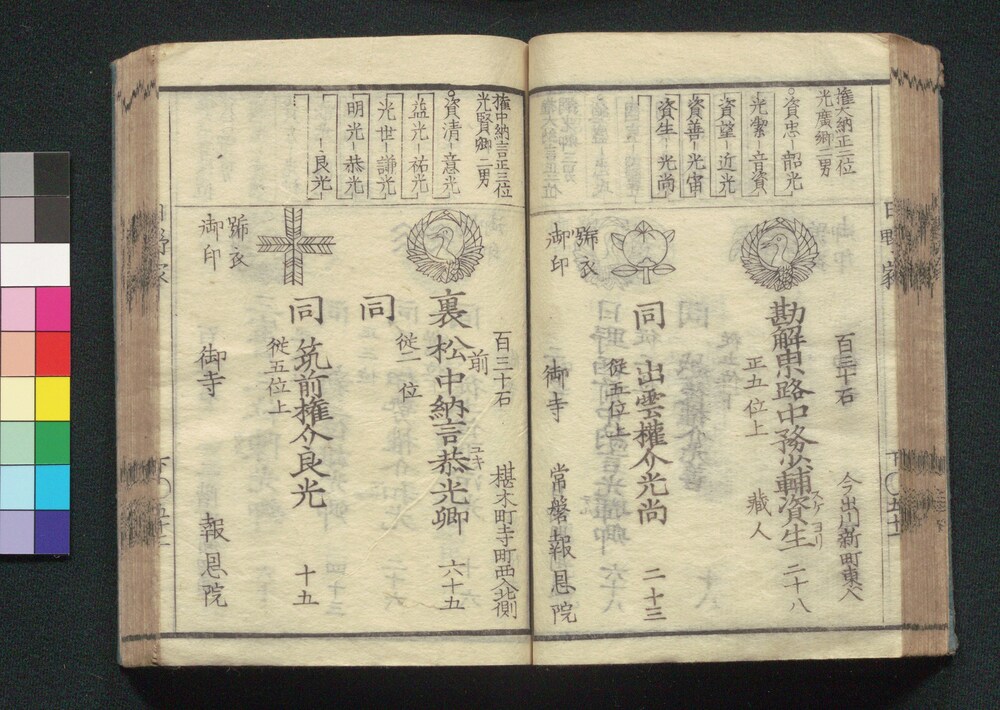 権大納正二位
光廣卿二男
資忠 韶光
光榮 音資
資望 近光
資善 光宙
資生 光尚
百三十石
今出川新町東入
勘解由路中務少輔資生 二十八
スケヨリ
正五位上
藏人
同 出雲權介光尚 二十三
從五位上
號衣
御印
御寺 常磐 報恩院
日野家
権中納言正三位
光賢卿二男
資清 意光
益光 祐光
光世 謙光
明光 恭光
良光
百三十石
椹木町寺町西入北側
裏松前中納言恭光卿 六十五
ユキ
同
從二位
同 筑前権介良光 十五
從五位上
號衣
御印
御寺 報恩院
日野家